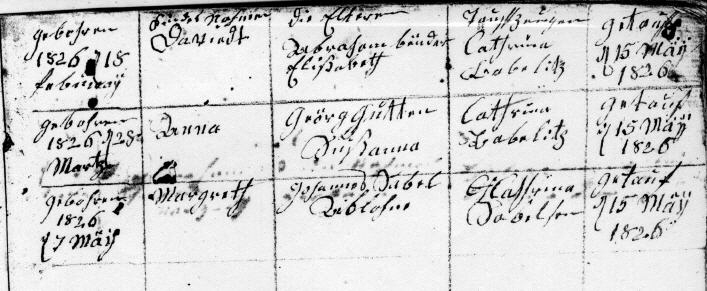 gebohren
1826 18
februäÿ
Kindes Nahmen
Daviedt
Die Elteren
Abraham bender
Elisabeth
Taufzeugen
Cathrina
Babelitz
getauf
15 Mäÿ
1826
gebohren
1826 28
Martz
Anna
Geörg Gutten
Sussanna
Cathrina
Babelitz
getauf
15 Mäÿ
1826
gebohren
1826
7 Mäÿ
Margreth
Johannes Dabel
getauf
15 Mäÿ
1826